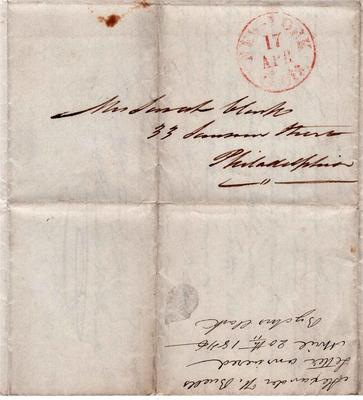 NEW-YORK
17
APR
Mrs Sarah Clark
33 Sansom Street
Philadelphia
Alexander H.
Letter answered
April 20th 1846
By Clark